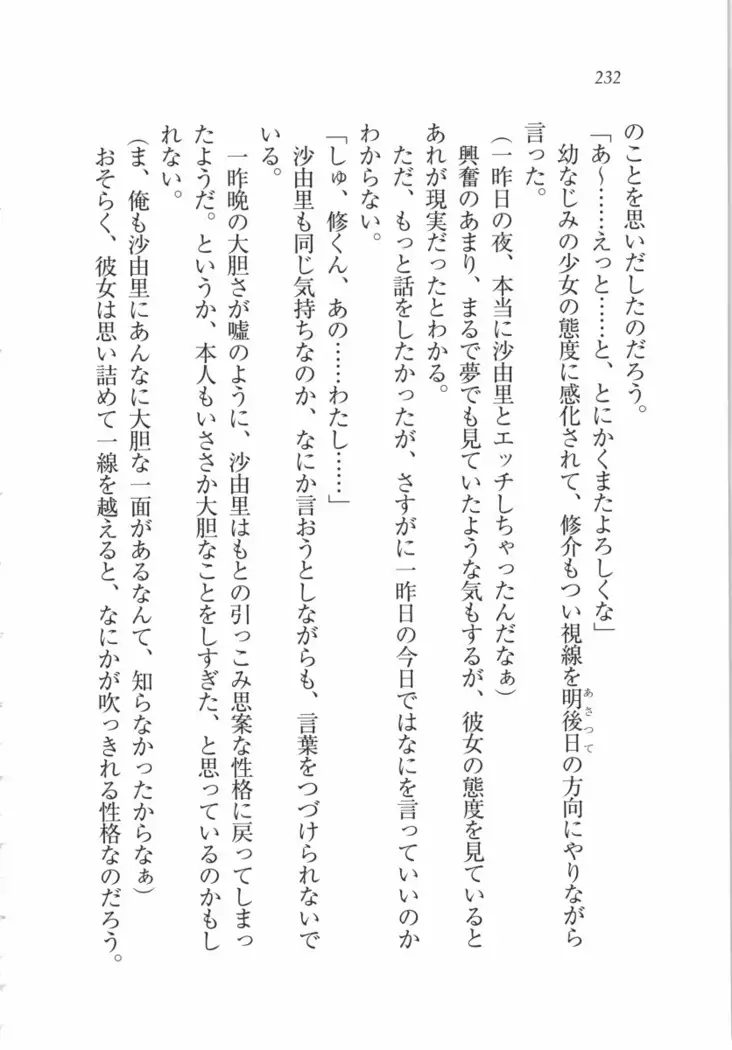 232
のことを思いだしたのだろう。
「あ～……えっと……と、とにかくまたよろしくな」
幼なじみの少女の態度に感化されて、修介もつい視線を明後日の方向にやりながら
あさつて
言った。
（一昨日の夜、本当に沙由里とエッチしちゃったんだなぁ）
興奮のあまり、まるで夢でも見ていたような気もするが、彼女の態度を見ていると
あれが現実だったとわかる。
ただ、もっと話をしたかったが、さすがに一昨日の今日ではなにを言っていいのか
わからない。
「しゅ、修くん、あの……わたし……」
沙由里も同じ気持ちなのか、なにか言おうとしながらも、言葉をつづけられないで
いる。
一昨晩の大胆さが嘘のように、沙由里はもとの引っこみ思案な性格に戻ってしまっ
たようだ。というか、本人もいささか大胆なことをしすぎた、と思っているのかもし
れない。
（ま、俺も沙由里にあんなに大胆な一面があるなんて、知らなかったからなぁ）
おそらく、彼女は思い詰めて一線を越えると、なにかが吹っきれる性格なのだろう。